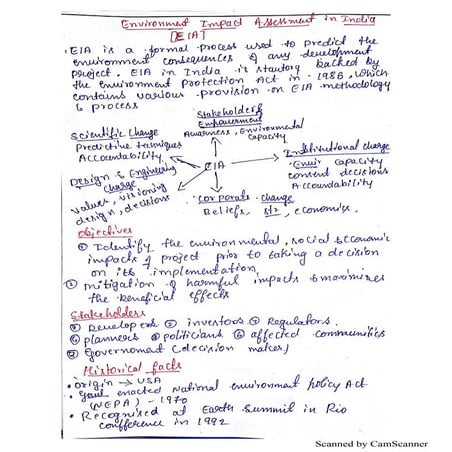 Environment Impact Assessment in India
[EIA]
• EIA is a formal process used to predict the
environment consequences of any development
project. EIA in India is stautory backed by
the environment Protection Act in 1986, which
contains various provision on EIA methodology
& process
Stakeholders
Empowerment
Awareness, Environmental
capacity
Scientific Change
Predictive techniques
Accountability
EIA
Institutional change
Envir capacity
consent decisions
Accountability
Design & Engineering
change
values, visioning
design, decisions
corporate change
Beliefs, str, economics.
Objectives
① Identify the environmental, social & economic
impacts of project prior to taking a decision
on its implementation
② mitigation of harmful impacts & maximizes
the beneficial effects
Stakeholders
① Developers ② investors ③ Regulators.
④ planners ⑤ politicians ⑥ affected communities
⑦ Government (decision maker)
Historical facts
• origin → USA
• enacted National environment policy Act
(NEPA) - 1970
• Recognised at Earth Summit in Rio
conference in 1992
Scanned by CamScanner